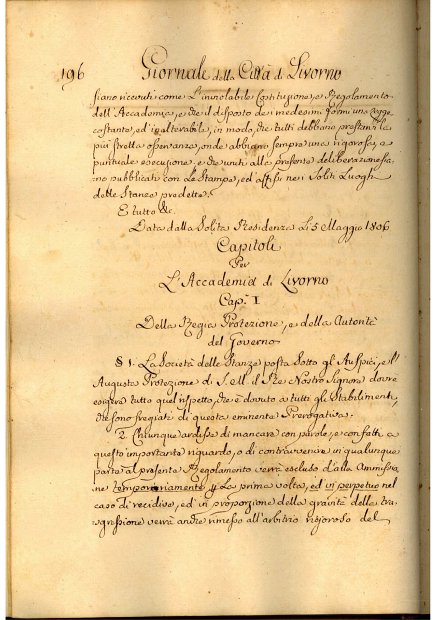 196 Giornale della Città di Livorno
siano ricevuti come l'inviolabile Costituzione, e Regolamento
dell'Accademia, e che il disposto dei medesimi formi una regge
costante, ed inalterabile, in modo, che tutti debbano prestarci la
più stretta osservanza, onde abbiano sempre una rigorosa, e
puntuale esecuzione, e che uniti alla presente deliberazione sia-
no pubblicati con le Stampe, ed affissi nei soliti Luoghi
delle Stanze predette.
E tutto &c.
Data dalla Solita Residenza Li 5 Maggio 1806
Capitoli
Per
L'Accademia di Livorno
Cap.° I
Della Regia Protezione, e della Autorità
del Governo
§ 1. La Società delle Stanze posta Sotto gli Auspici, e l'
Augusta Protezione di S. M. il Re Nostro Signore dovrà
esigere tutto quel rispetto, che è dovuto a tutti gli Stabilimenti,
che sono fregiati di questa eminente Prerogativa.
2. Chiunque ardisse di mancare con parole, e con fatti a
questo importante riguardo, o di contravvenire in qualunque
parte al presente Regolamento verrà escluso dalla Ammissio-
ne temporariamente p La prima volta, ed in perpetuo nel
caso di recidiva, ed in proporzione della gravità della tra-
sgressione verrà anche rimesso all'arbitrio rigoroso del